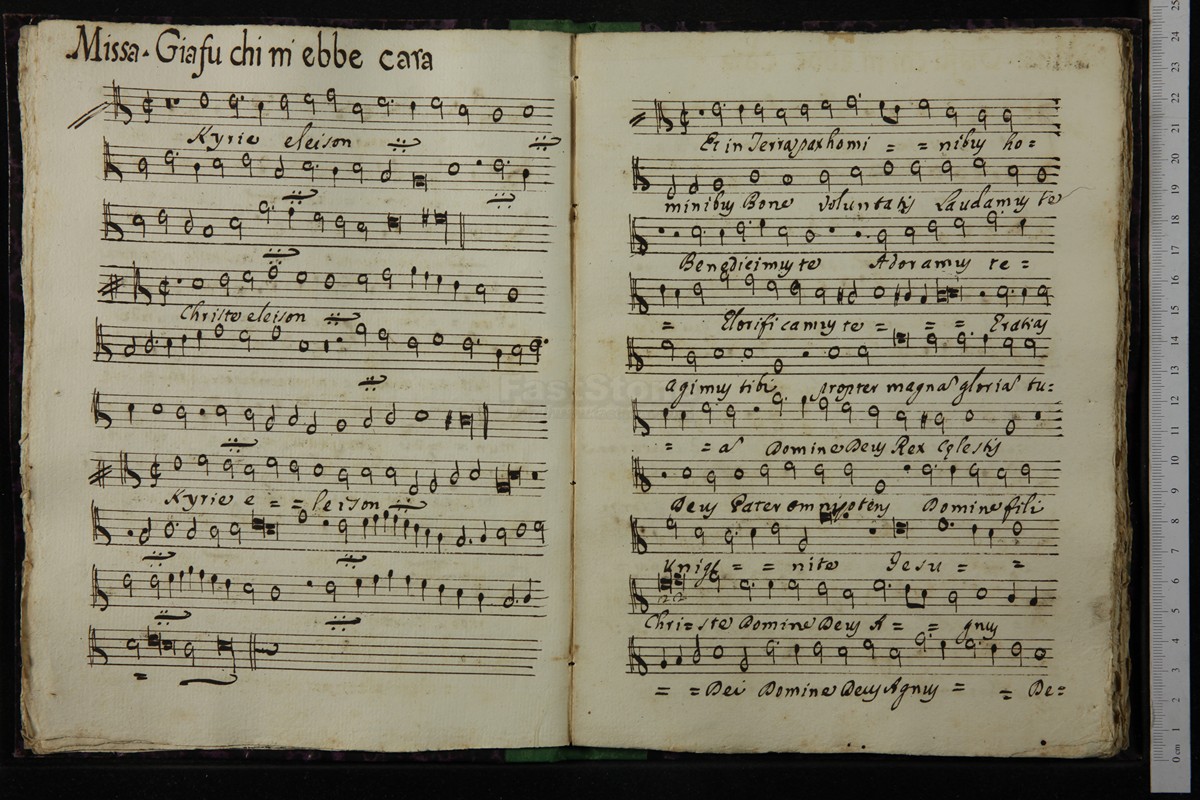 Missa - Giafu chi m ebbe cara
Kyrie eleison
Christe eleison
Kyrie e = = leison
Et in Terra pax homi = = nibus ho=
minibus Bone voluntatis Laudamus te
Benedicimus te Adoramus te =
= Glorificamus te = = = Gratias
agimus tibi propter magnã gloriã tu=
= = ã Domine Deus Rex Celestis
Deus Pater omnipotens Domine fili
unige = = nite Jesu = =
Chri = ste Domine Deus A = = gnus
= = Dei Domine Deus Agnus = = De=
FastSton
0 cm 1 2 3 4 5 6 7 8 9 10 11 12 13 14 15 16 17 18 19 20 21 22 23 24 25